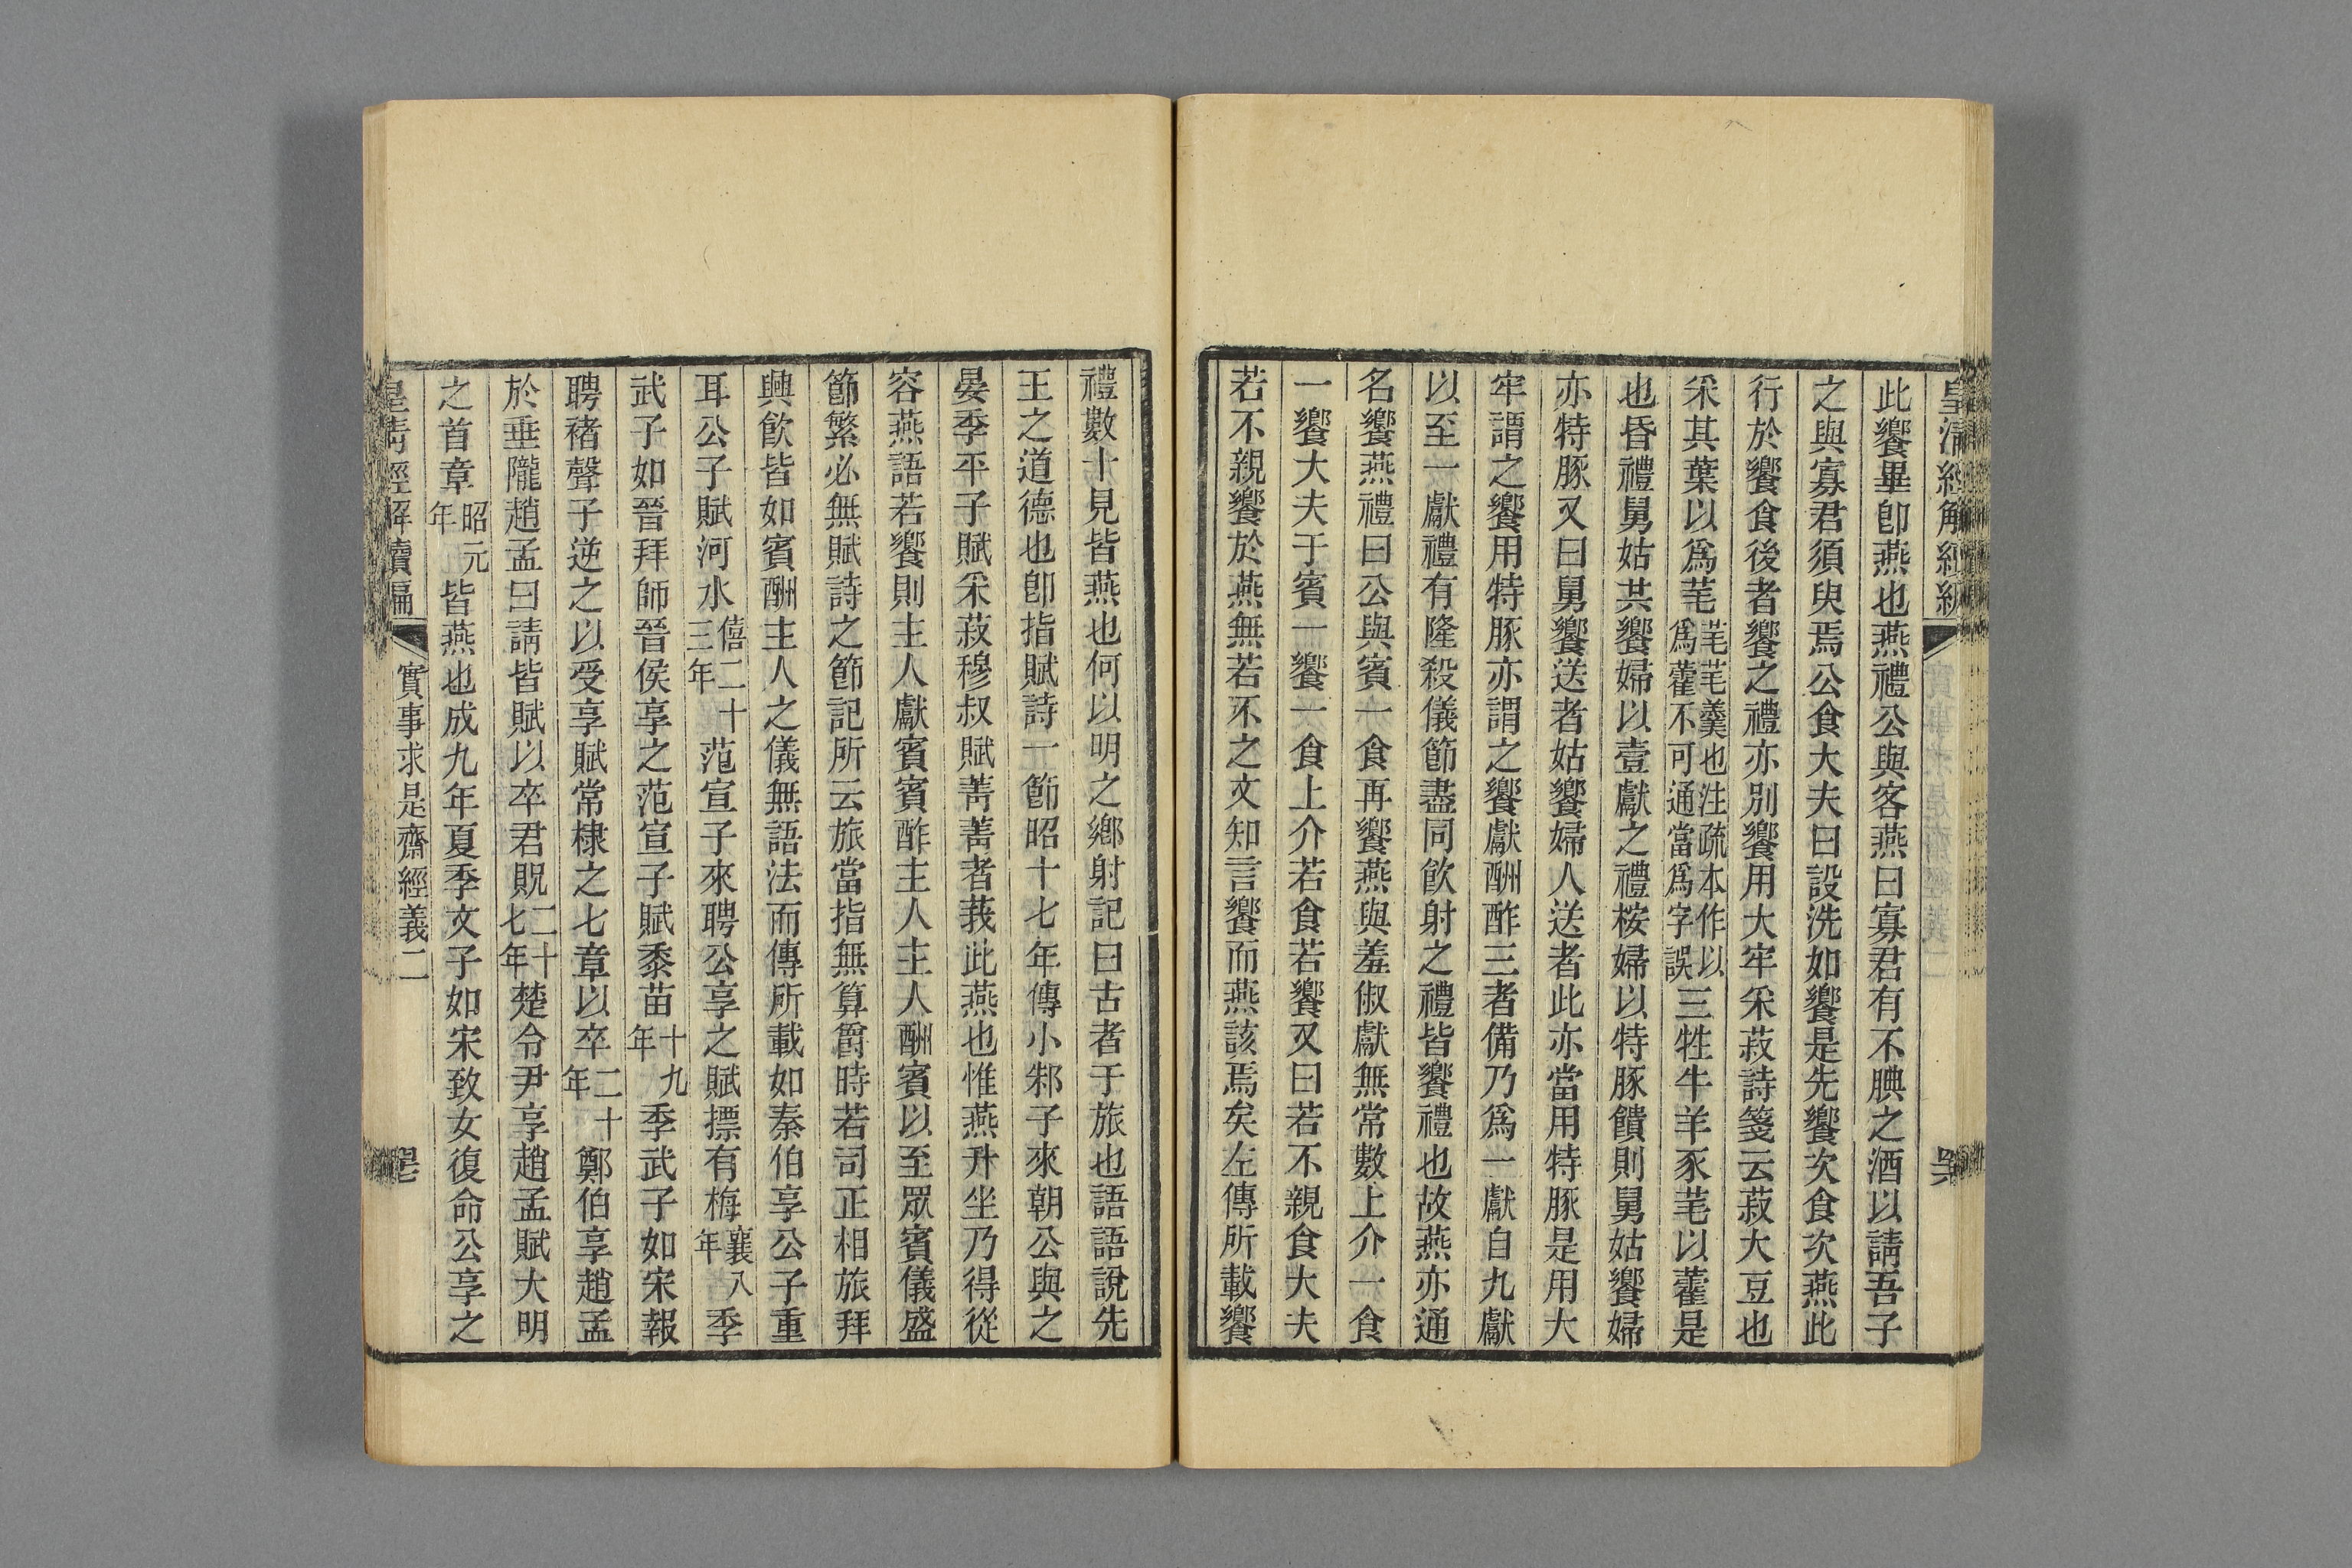 此饗畢卽燕也燕禮公與客燕曰寡君有不腆之酒以請吾子
之與寡君須臾焉公食大夫曰設洗如饗是先饗次食次燕此
行於饗食後者饗之禮亦別饗用大牢采菽詩箋云菽大豆也
采其葉以爲芼芼芼羹也注疏本作以爲藿不可通當爲字誤三牲牛羊豕芼以藿是
也昏禮舅姑共饗婦以壹獻之禮桉婦以特豚饋則舅姑饗婦
亦特豚又曰舅饗送者姑饗婦人送者此亦當用特豚是用大
牢謂之饗用特豚亦謂之饗獻酬酢三者備乃爲一獻自九獻
以至一獻禮有隆殺儀節盡同飮射之禮皆饗禮也故燕亦通
名饗燕禮曰公與賓一食再饗燕與羞俶獻無常數上介一食
一饗大夫于賓一饗一食上介若食若饗又曰若不親食大夫
若不親饗於燕無若不之文知言饗而燕該焉矣左傳所載饗
禮數十見皆燕也何以明之鄉射記曰古者于旅也語語說先
王之道德也卽指賦詩一節昭十七年傳小邾子來朝公與之
晏季平子賦采菽穆叔賦菁菁者莪此燕也惟燕升坐乃得從
容燕語若饗則主人獻賓賓酢主人主人酬賓以至眾賓儀盛
節繁必無賦詩之節記所云旅當指無算爵時若司正相旅拜
興飮皆如賓酬主人之儀無語法而傳所載如秦伯享公子重
耳公子賦河水僖二十三年范宣子來聘公享之賦摽有梅襄八年季
武子如晉拜師晉侯享之范宣子賦黍苗十九年季武子如宋報
聘褚聲子逆之以受享賦常棣之七章以卒二十年鄭伯享趙孟
於垂隴趙孟曰請皆賦以卒君貺二十七年楚令尹享趙孟賦大明
之首章昭元年皆燕也成九年夏季文子如宋致女復命公享之
皇清經解續編
實事求是齋經義二